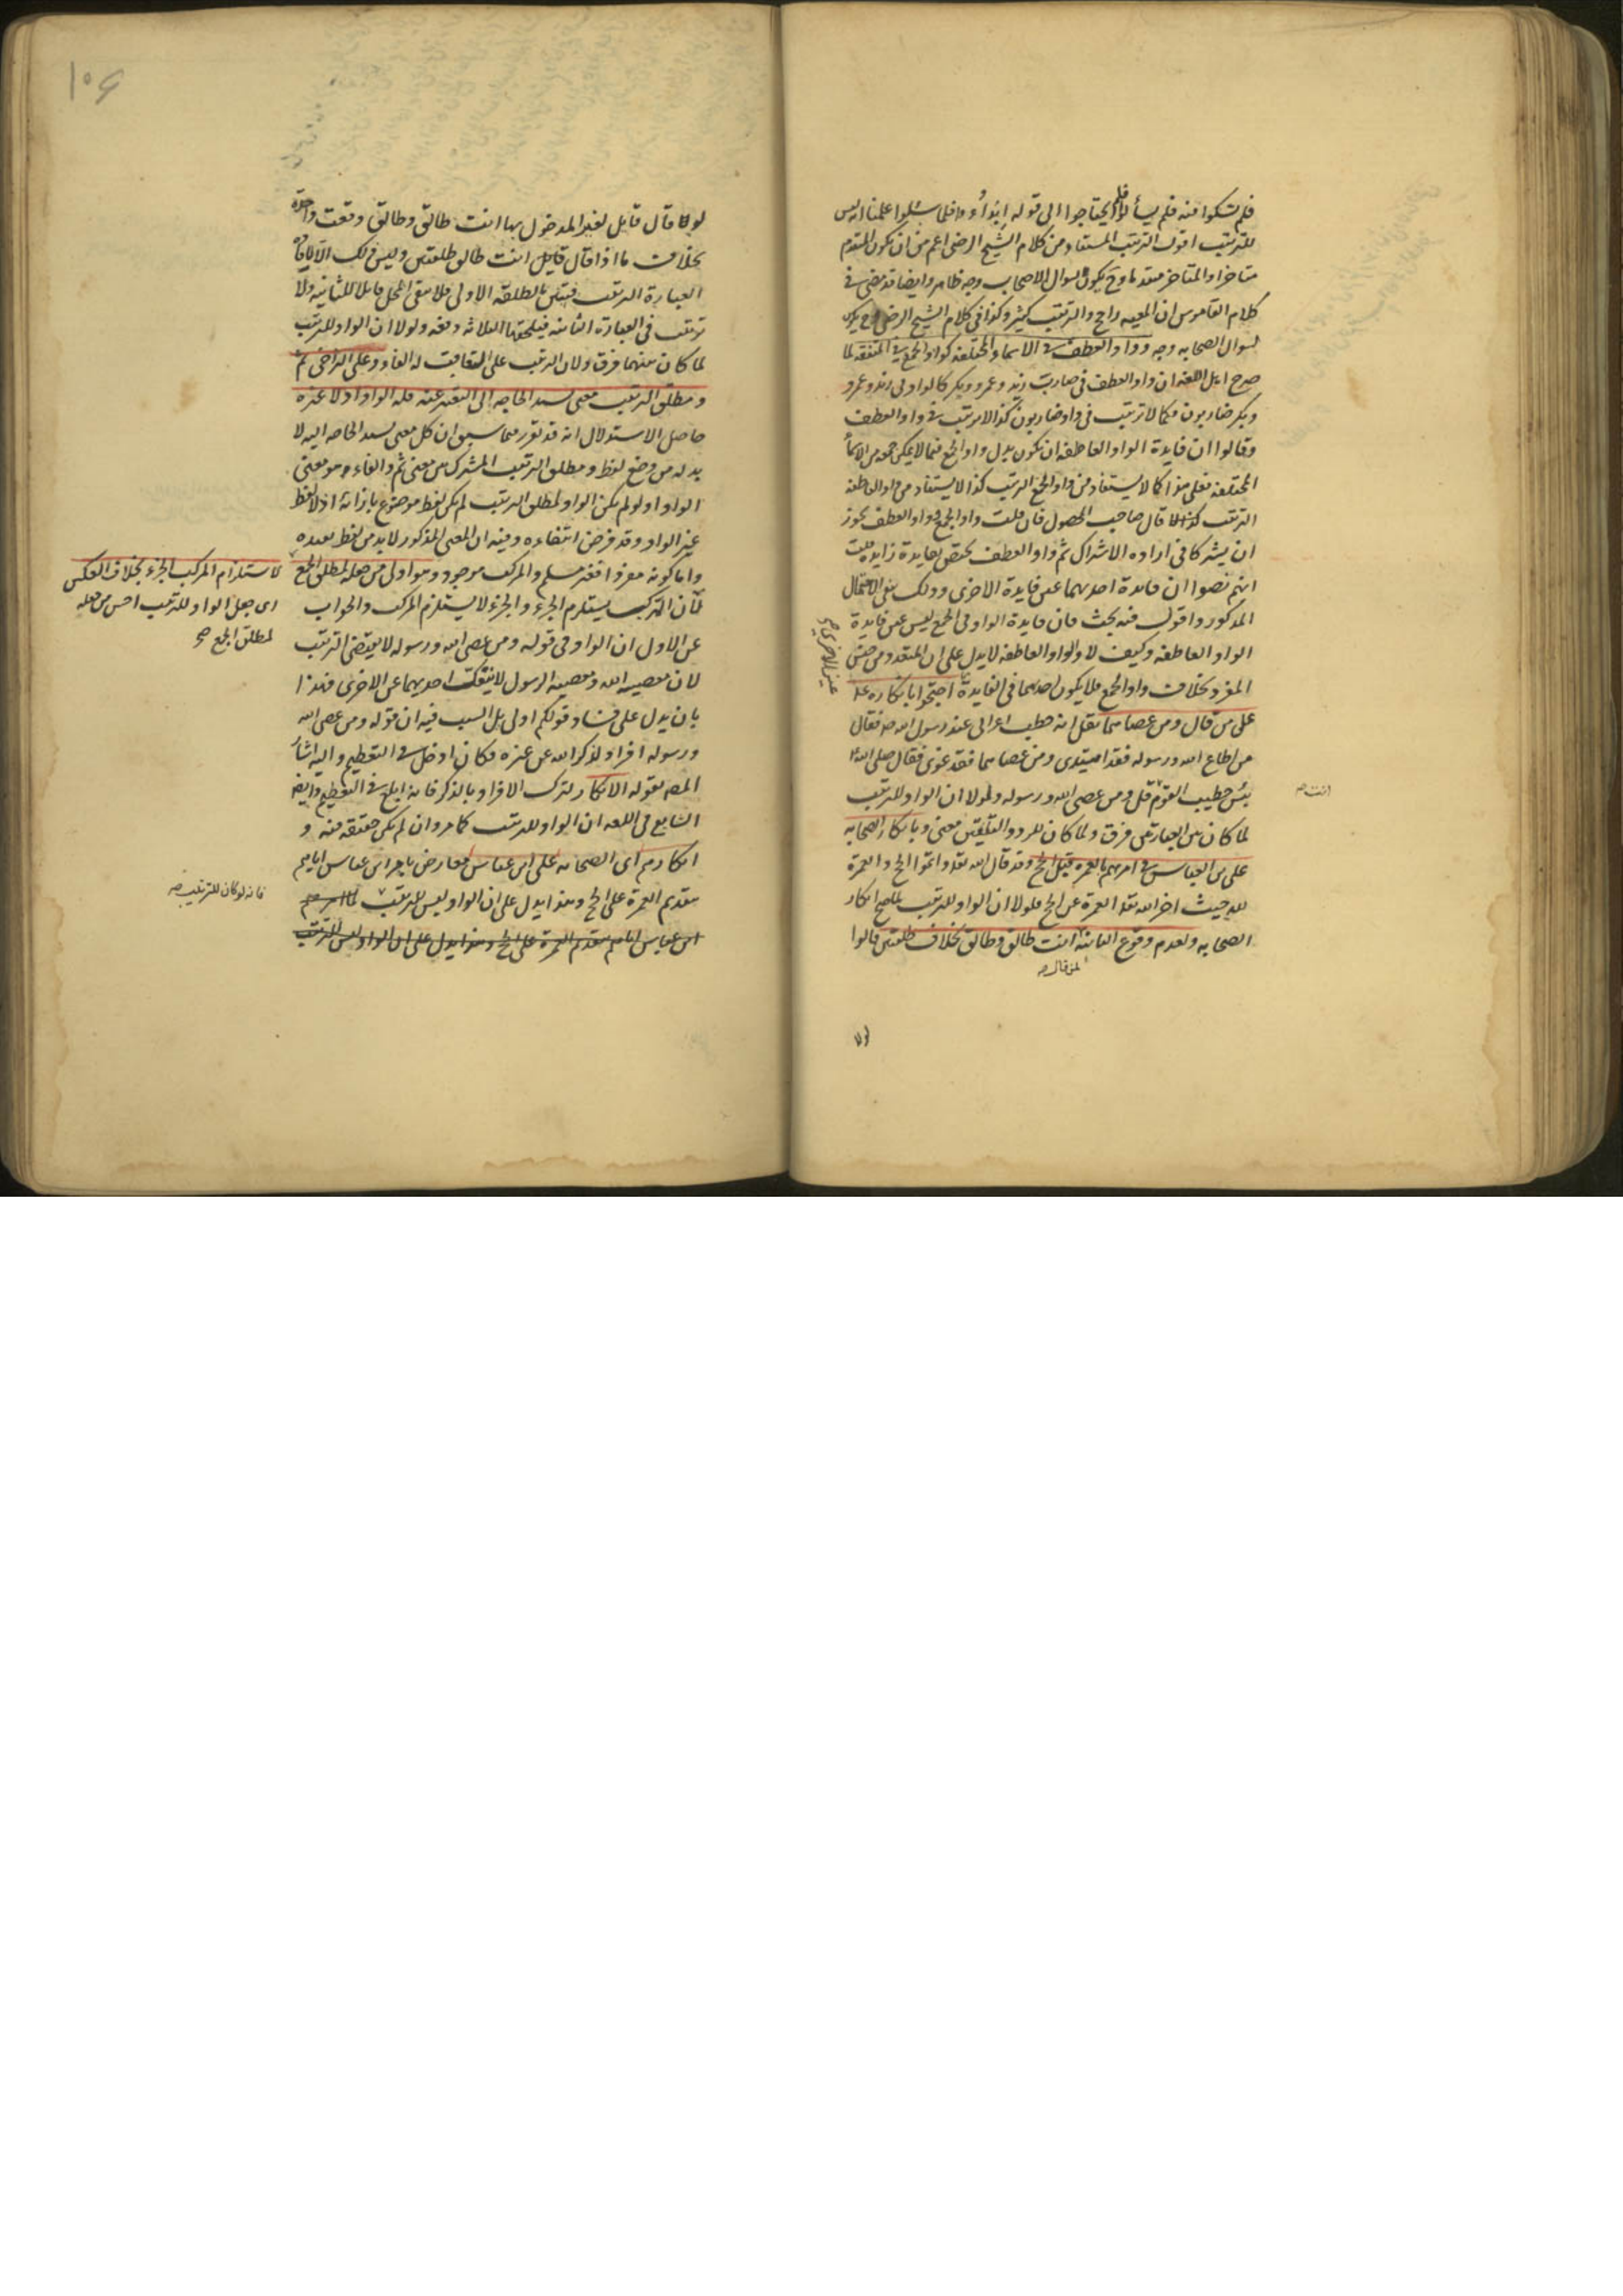 فلم يشكوا فيه فلم يسألوا فلم يحتاجوا الى قوله ابدؤا و فلما سئلوا علمنا انه ليس
للترتيب اقول الترتيب المستفاد من كلام الشيخ الرضى اعم من ان يكون المتقدم
متاخرا والمتاخر متقدما وح يكون لسوال الاصحاب وجه ظاهر وايضا قد مضى فى
كلام القاموس ان المعيه راجح والترتيب كثير وكذا فى كلام الشيخ الرضى وح يكون
لسوال الصحابه وجه وواو العطف فى الاسماء المختلفه كواو الجمع فى المتفقه لما
صرح اهل اللغه ان واو العطف فى ضارب زيد وعمرو وبكر كالواو فى زيد وعمرو
وبكر ضاربون فكما لا ترتيب فى واو ضاربون كذا لا ترتيب فى واو العطف
وقالوا ان فايدة الواو العاطفه ان تكون بدل واو الجمع فيما لا يمكن جمعه من الاسماء
المختلفه فعلى هذا كما لا يستفاد من واو الجمع الترتيب كذا لا يستفاد من واو العاطفه
الترتيب كذا قال صاحب المحصول فان قلت واو الجمع وواو العطف يجوز
ان يشتركا فى افاده الاشتراك ثم واو العطف يختص بفايدة زايده قلت
انهم نصوا ان فايدة احديهما عين فايدة الاخرى وذلك ينفى الاحتمال
المذكور واقول فيه بحث فان فايدة الواو فى الجمع ليس عين فايدة
الواو العاطفه وكيف لا والواو العاطفه لا يدل على ان المتعدد من جنس
المفرد بخلاف واو الجمع فلا يكون احديهما فى الفايدة احتجوا بانكاره
عين الاخرى صح
على من قال ومن عصاهما نقل انه خطب اعرابى عند رسول الله ص فقال
من اطاع الله ورسوله فقد اهتدى ومن عصاهما فقد غوى فقال صلى الله
بئس خطيب القوم قل ومن عصى الله ورسوله ولولا ان الواو للترتيب
انت صح
لما كان بين العبارتين فرق ولما كان للرد والتلقين معنى وبانكار الصحابه
على بن العباس فى امرهم بالعمره قبل الحج وقد قال الله تعا واتموا الحج والعمرة
لله حيث اخر الله تعا العمرة عن الحج فلولا ان الواو للترتيب لما صح انكار
الصحابه ولعدم وقوع الثانية انت طالق وطالق بخلاف طلقتين قالوا
لمن قال صح
لولا
١٠٤
لولا قال قايل لغير المدخول بها انت طالق وطالق وقعت واحدة
بخلاف ما اذا قال قايل انت طالق طلقتين وليس ذلك الا لافادة
العبارة الترتيب فتبين بالطلقة الاولى فلا يبقى المحل قابلا للثانيه ولا
ترتيب فى العبارة الثانيه فيلحقها الثلاثه دفعه ولولا ان الواو للترتيب
لما كان بينهما فرق ولان الترتيب على التعاقب له الفاء وعلى التراخى ثم
ومطلق الترتيب معنى يشتد الحاجه الى التعبير عنه فله الواو اذ لا غيره
حاصل الاستدلال انه قد تقرر فيما سبق ان كل معنى يشتد الحاجه اليه لا
بد له من وضع لفظ ومطلق الترتيب المشترك بين معنى ثم والفاء هو معنى
الواو اذ لو لم يكن الواو لمطلق الترتيب لم يكن لفظ موضوع بازائه اذ لا لفظ
غير الواو وقد فرض انتفاءه وفيه ان المعنى المذكور لا بد من لفظ يفيده
واما كونه مفردا فغير مسلم والمركب موجود وهو اولى من جعله لمطلق الجمع
لاستلزام المركب الجزء بخلاف العكس
اى جعل الواو للترتيب احسن من جعله
لمطلق الجمع صح
لان المركب يستلزم الجزء والجزء لا يستلزم المركب والجواب
عن الاول ان الواو فى قوله ومن عصى الله ورسوله لا يقتضى الترتيب
لان معصيه الله ومعصيه الرسول لا ينفك احديهما عن الاخرى فهذا
بان يدل على فساد قولكم اولى بل السبب فيه ان قوله ومن عصى الله
ورسوله افراد لذكر الله عن غيره فكان ادخل فى التعظيم واليه اشار
المصه بقوله الانكار لترك الافراد بالذكر فانه ابلغ فى التعظيم وايضا
الشايع فى اللغه ان الواو للترتيب كما مر وان لم يكن حقيقه فيه و
انكارهم اى الصحابه على ابن عباس معارض بامر ابن عباس اياهم
بتقديم العمرة على الحج وهذا يدل على ان الواو ليس للترتيب
فانه لو كان للترتيب صح
ابن عباس اياهم بتقديم العمرة على الحج وهذا يدل على ان الواو ليس للترتيب